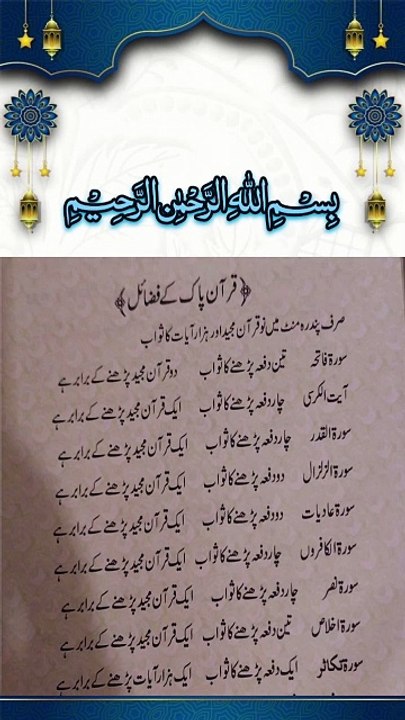 بِسْمِ اللهِ الرَّحْمٰنِ الرَّحِيْمِ
﴿قرآن پاک کے فضائل﴾
صرف پندرہ منٹ میں نو قرآن مجید اور ہزار آیات کا ثواب
سورۃ فاتحہ تین دفعہ پڑھنے کا ثواب دو قرآن مجید پڑھنے کے برابر ہے
آیت الکرسی چار دفعہ پڑھنے کا ثواب ایک قرآن مجید پڑھنے کے برابر ہے
سورۃ القدر چار دفعہ پڑھنے کا ثواب ایک قرآن مجید پڑھنے کے برابر ہے
سورۃ الزلزال دو دفعہ پڑھنے کا ثواب ایک قرآن مجید پڑھنے کے برابر ہے
سورۃ عادیات دو دفعہ پڑھنے کا ثواب ایک قرآن مجید پڑھنے کے برابر ہے
سورۃ الکافروں چار دفعہ پڑھنے کا ثواب ایک قرآن مجید پڑھنے کے برابر ہے
سورۃ نصر چار دفعہ پڑھنے کا ثواب ایک قرآن مجید پڑھنے کے برابر ہے
سورۃ اخلاص تین دفعہ پڑھنے کا ثواب ایک قرآن مجید پڑھنے کے برابر ہے
سورۃ تکاثر ایک دفعہ پڑھنے کا ثواب ایک ہزار آیات پڑھنے کے برابر ہے